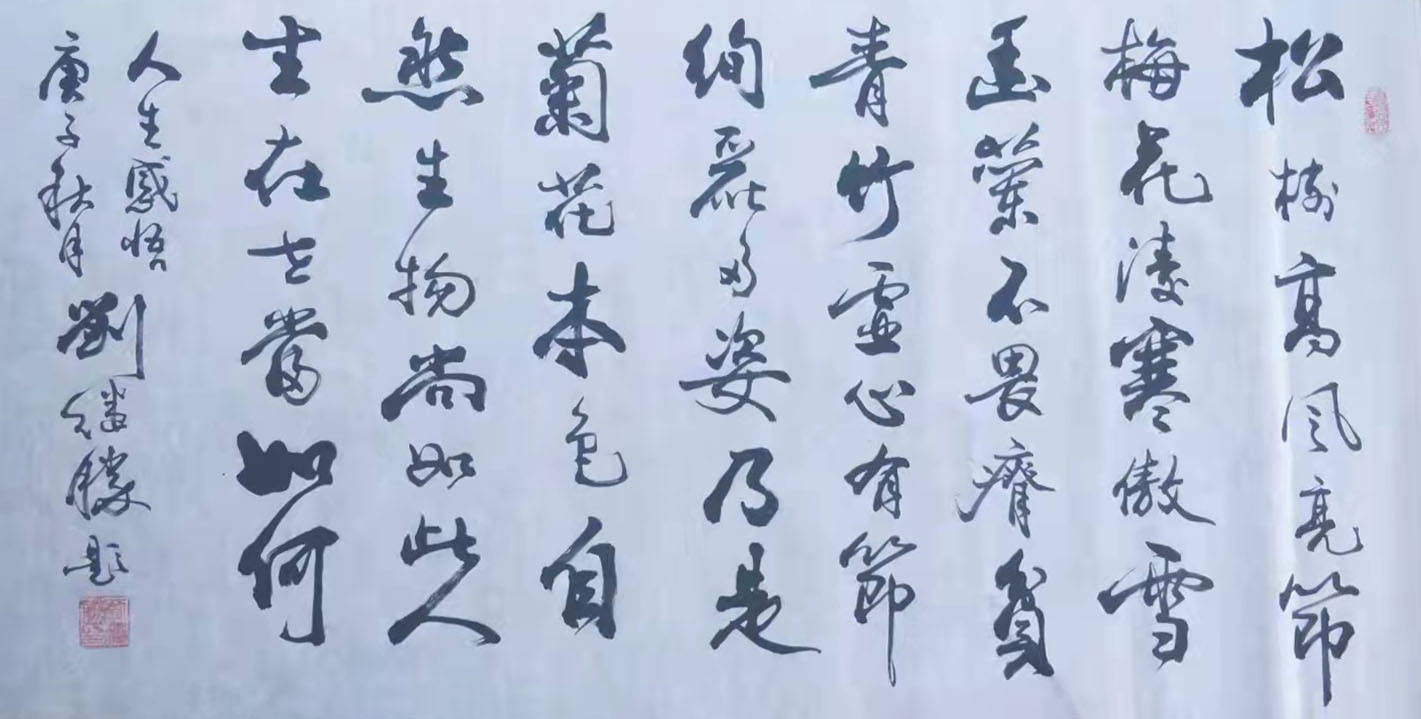 松樹高风亮節
梅花淩寒傲雪
幽蘭不畏瘠貧
青竹虚心有節
绚麗多姿乃是
菊花本色自
然生物尚如此人
生在世當如何
人生感悟
庚子秋月 劉勝題